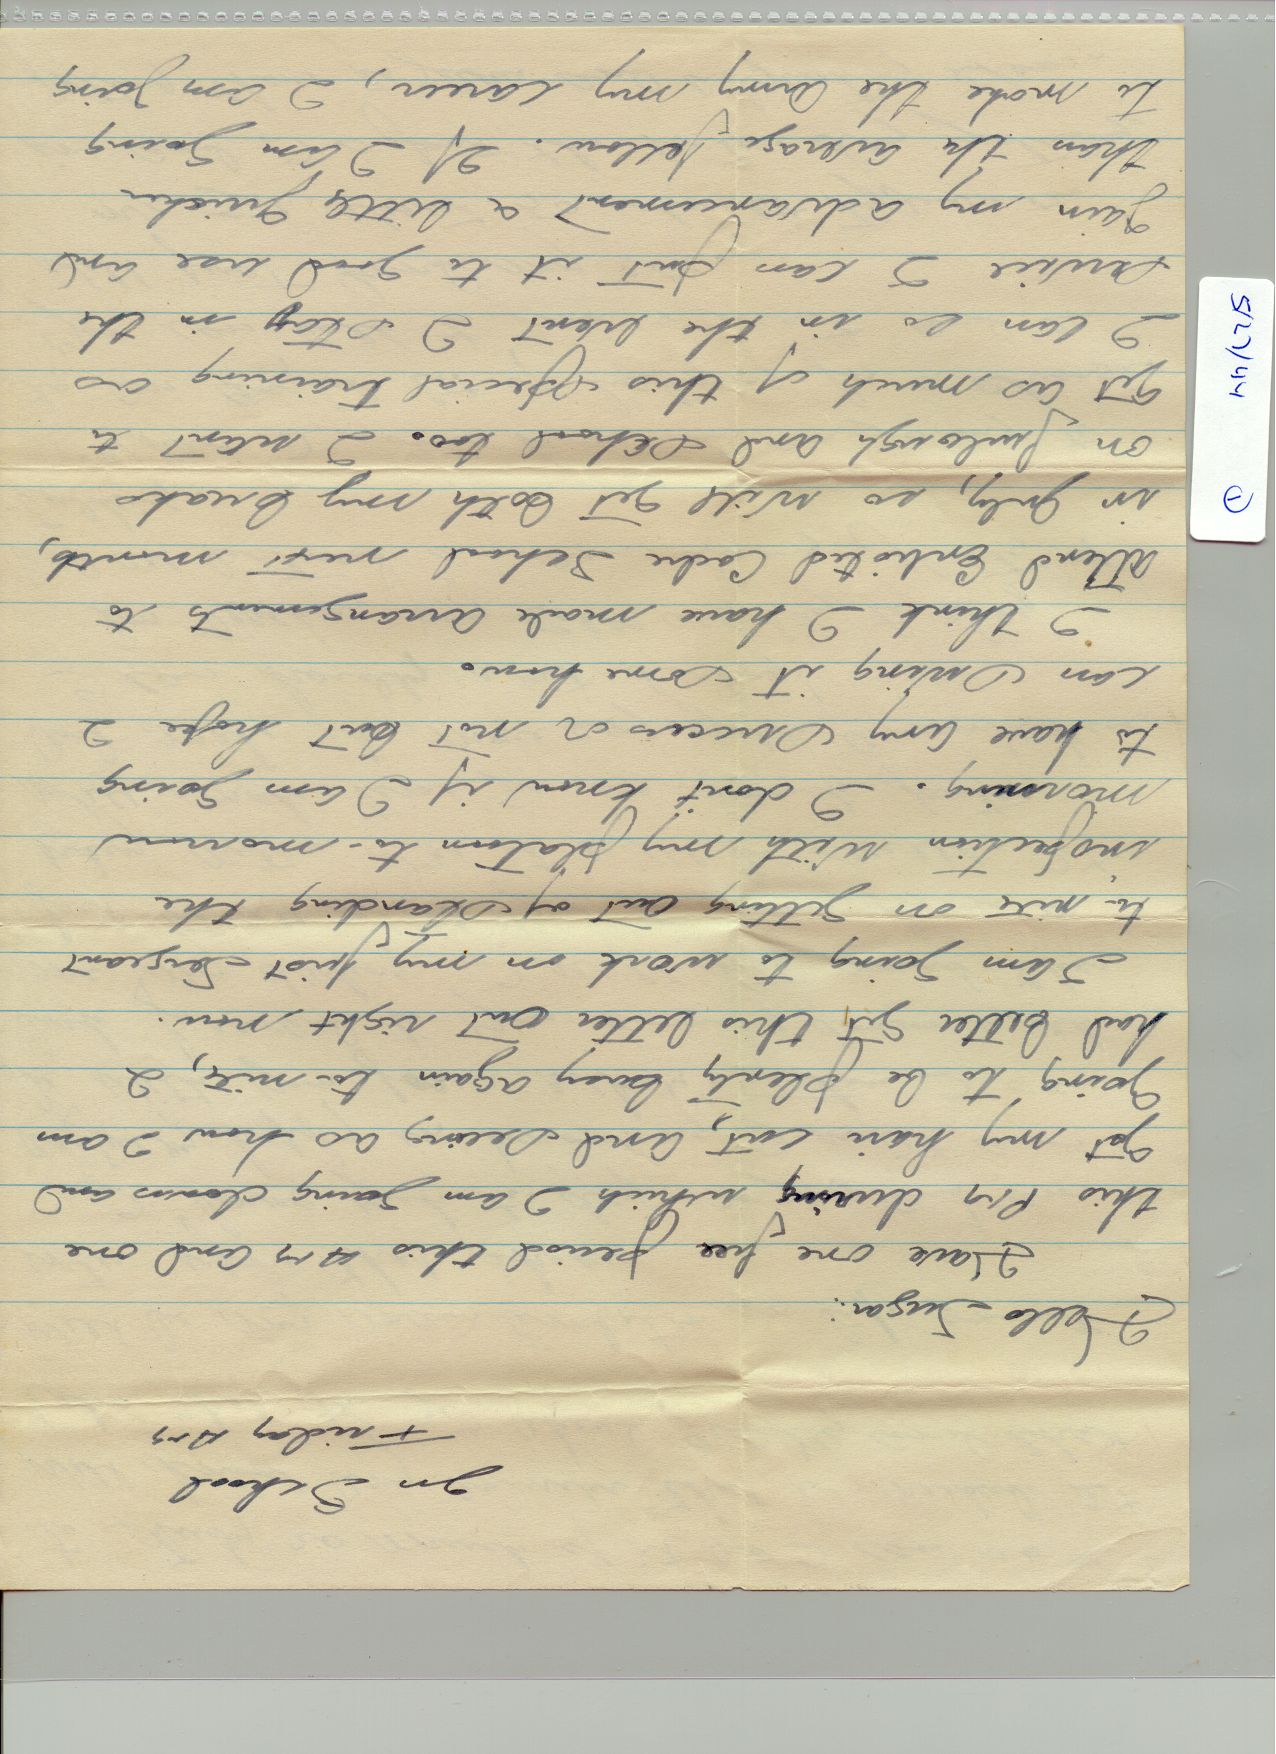 In School
Friday A.M.
Hello Sugar:
Have one free period this A.M. and one
this P.M. during which I am going down and
get my hair cut, and seeing as how I am
going to be plenty busy again to-nite, I
had better get this letter out right now.
I am going to work on my first Sergeant
to-nite on getting out of standing the
inspection with my platoon to-morrow
morning. I don't know if I am going
to have any success or not but hope I
can swing it some how.
I think I have made arrangements to
attend Enlisted Cadre School next month,
in July, so will get both my breaks
on furlough and school too. I want to
get as much of this special training as
I can so in the event I stay in the
service I can put it to good use and
gain my advancement a little quicker
than the average fellow. If I am going
to make the army my career, I am going
①
5/27/44